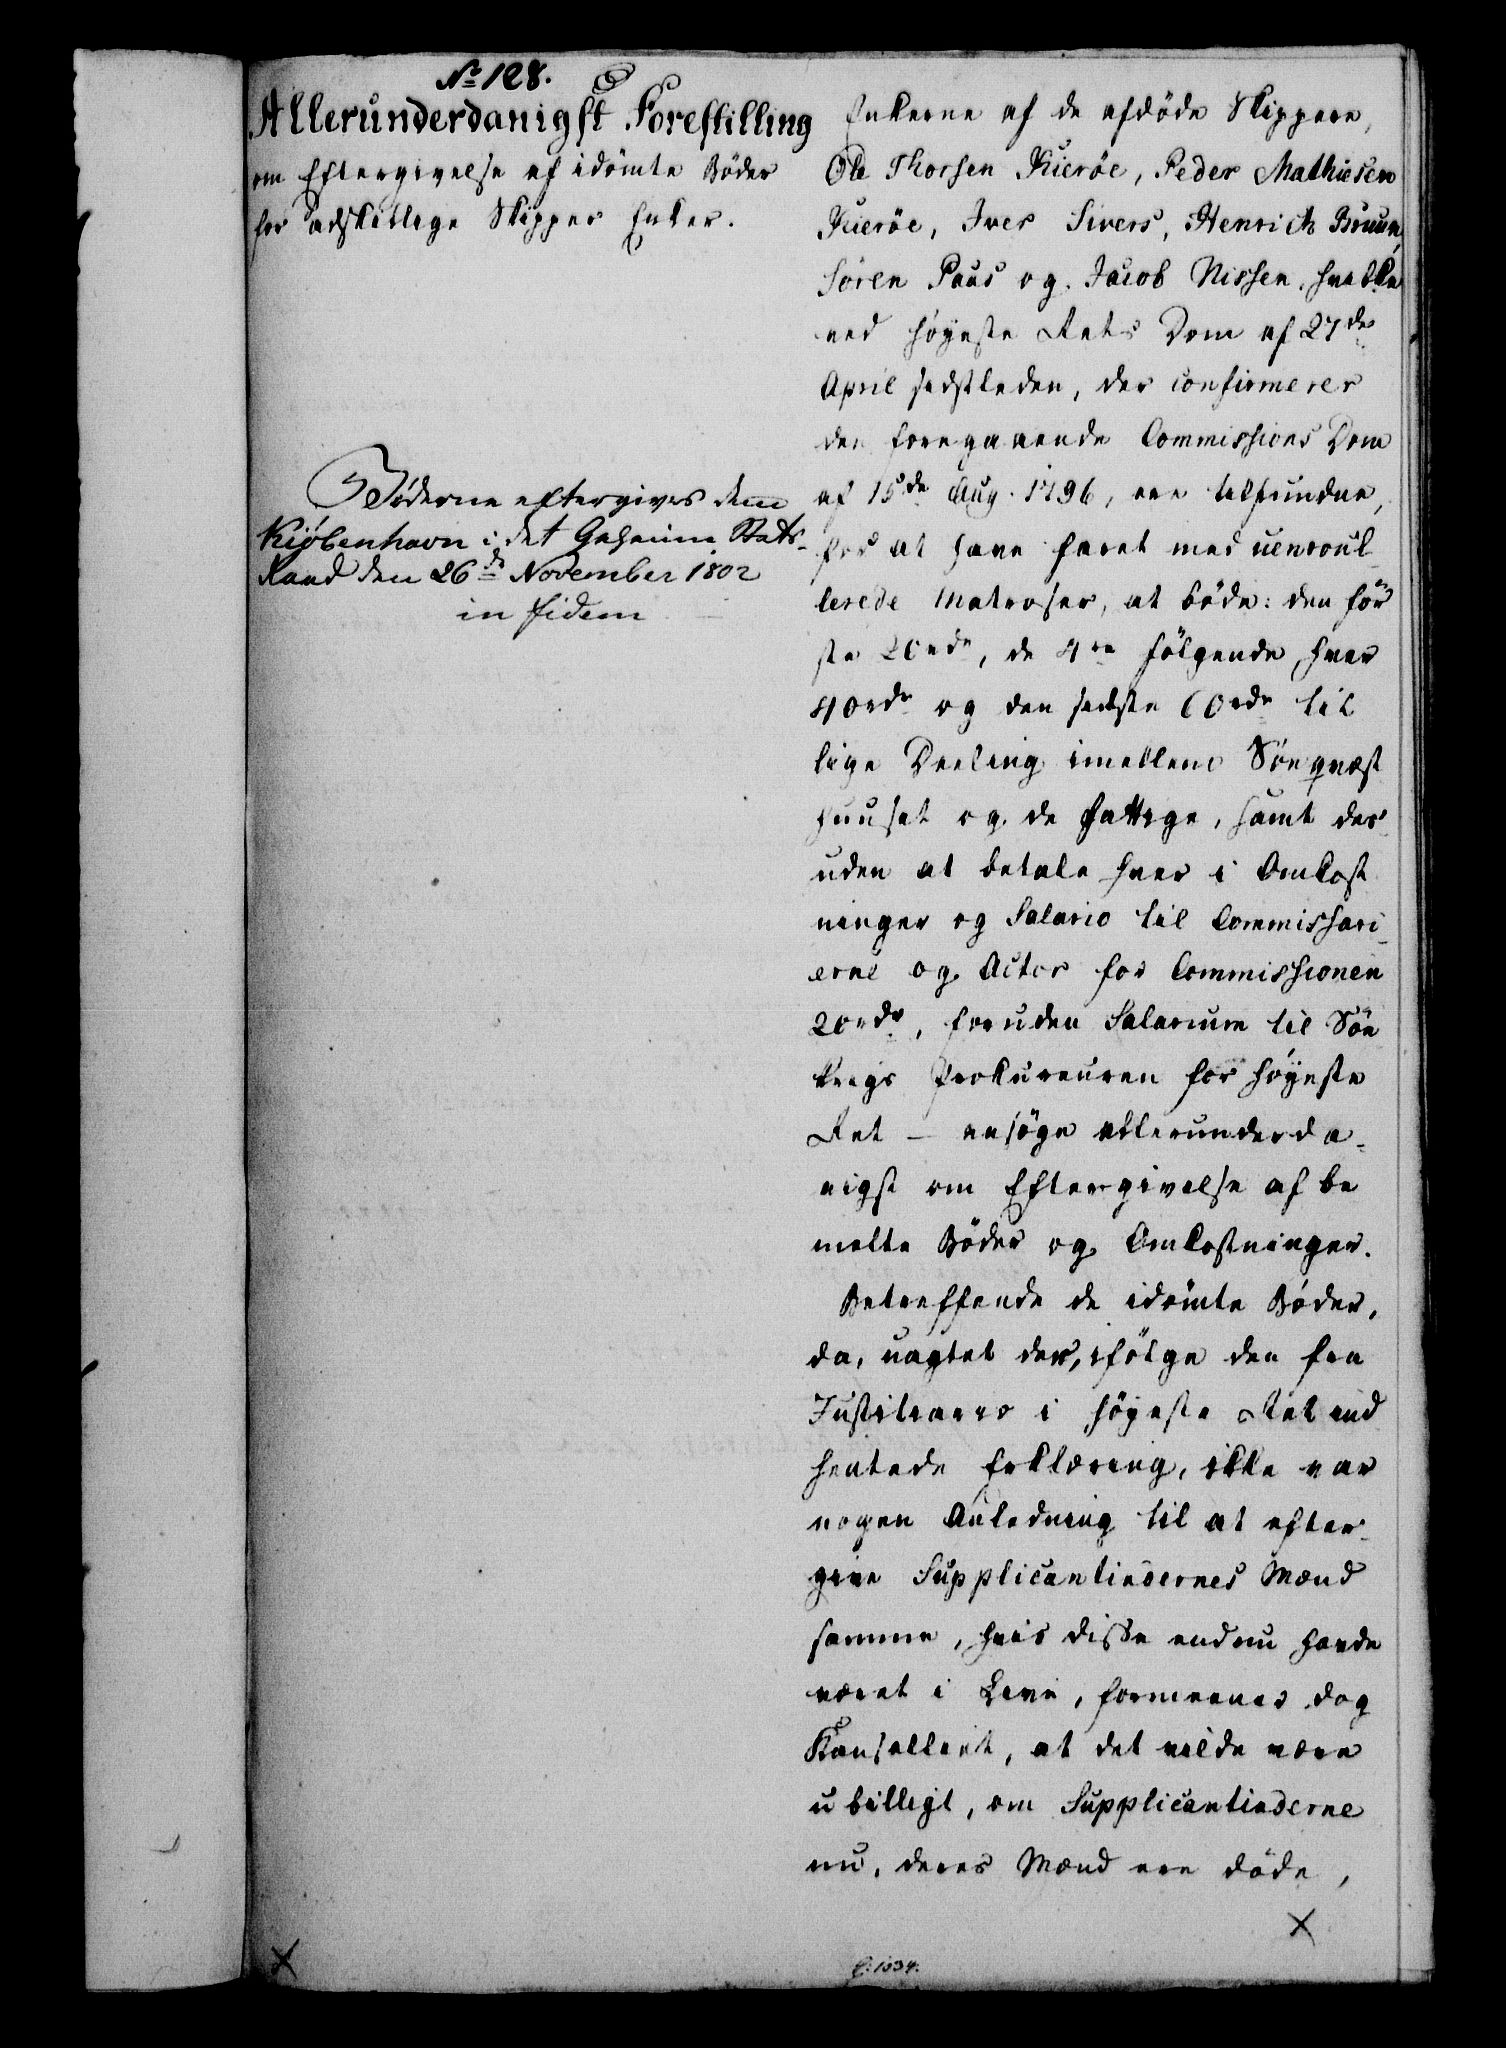 No 128.
Allerunderdanigst Forestilling
om Eftergivelse af idömte Böder
for adskillige Skipper Enker.
Böderne eftergives dem
Kiöbenhavn i det Geheime Stats-
Raad den 26de November 1802
in fidem
Enkerne af de afdöde Skippere,
Ole Thorsen Kieröe, Peder Mathiesen
Kieröe, Iver Sivers, Henrich Bruun,
Sören Paus og Jacob Nissen, hvilke
ved Høyeste Rets Dom af 27de
April sidstleden, der confirmerer
den foregaaende Commissions Dom
af 15de Aug. 1796, ere tilfundne,
for at have faret med uenroul-
lerede Matroser, at böde: den för
ste 20 rdr, de 4re fölgende hver
40 rdr og den sidste 60 rdr til
lige Deeling imellem Söeqvæst
huuset og de Fattige, samt des-
uden at betale hver i Omkost
ninger og Salario til Commissari-
erne og Actor for Commissionen
20 rdr, foruden Salarium til Söe
Krigs Prokureuren for Høyeste
Ret – ansöge allerunderda-
nigst om Eftergivelse af be
meldte Böder og Omkostninger.
Betreffende de idömte Böder,
da, uagtet der, ifölge den fra
Justitiario i Høyeste Ret ind
hentede Erklæring, ikke var
nogen Anledning til at efter-
give Supplicantindernes Mænd
samme, hvis disse endnu havde
været i Live, formeenes dog
Kancelliet, at det vilde være
ubilligt, om Supplicantinderne
nu, deres Mænd ere döde,